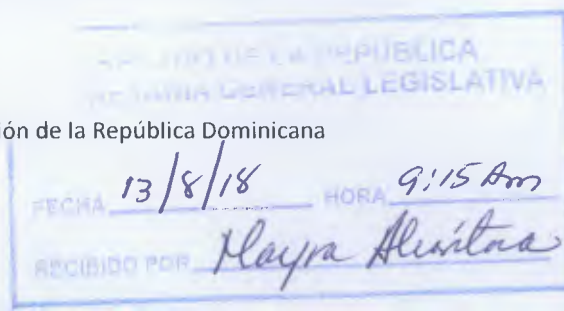 DE LA REPÚBLICA
GENERAL LEGISLATIVA
ión de la República Dominicana
FECHA 13/8/18 HORA 9:15 Am
RECIBIDO POR Mayra